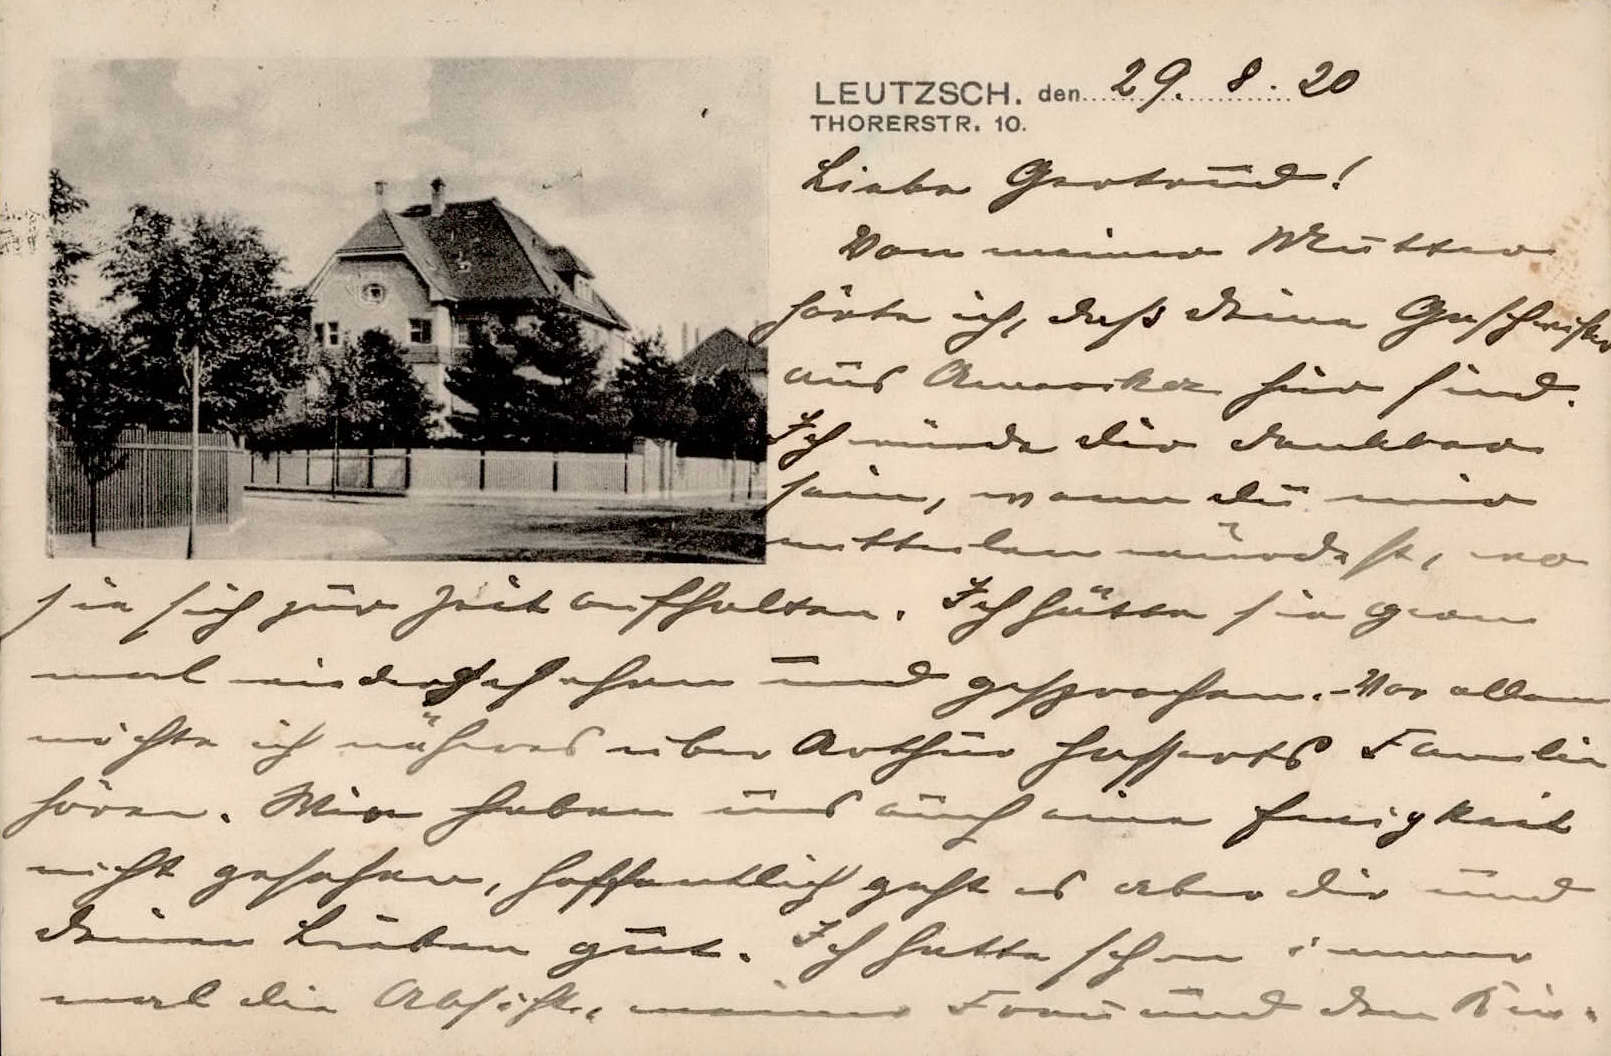 LEUTZSCH. den 29. 8. 20
THORERSTR. 10.
Liebe Gertrud!
Von meiner Mutter
hörte ich, daß Deine Geschwister
aus Amerika hier sind.
Ich würde dir dankbar
sein, wenn du mir
mitteilen würdest, wo
sie sich zur Zeit aufhalten. Ich hätte sie gern
mal wiedergesehen und gesprochen. - Vor allem
möchte ich näheres über Arthur Hasserts Familie
hören. Wir haben uns auch eine Ewigkeit
nicht gesehen, hoffentlich geht es aber dir und
Deinen Lieben gut. Ich hatte schon immer
mal die Absicht, meiner Frau und den Kin-